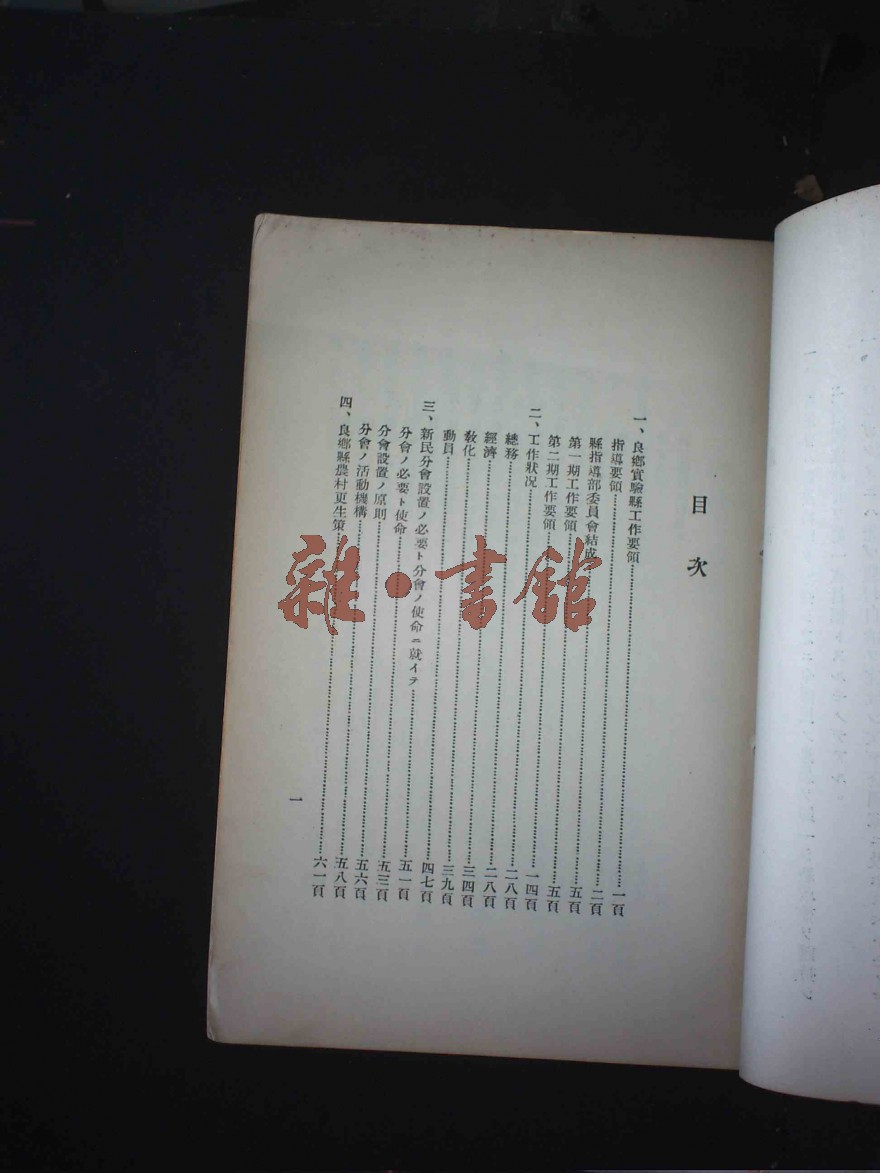 目次
一、良鄉實驗縣工作要領……一頁
指導要領……二頁
縣指導部委員會結成……五頁
第一期工作要領……五頁
第二期工作要領……一四頁
二、工作狀況……二八頁
總務……二八頁
經濟……三四頁
敎化……三九頁
動員……四七頁
三、新民分會設置ノ必要ト分會ノ使命ニ就イテ……五一頁
分會ノ必要ト使命……五三頁
分會設置ノ原則……五六頁
分會ノ活動機構……五八頁
四、良鄉縣農村更生策……六一頁
一
雜·書館